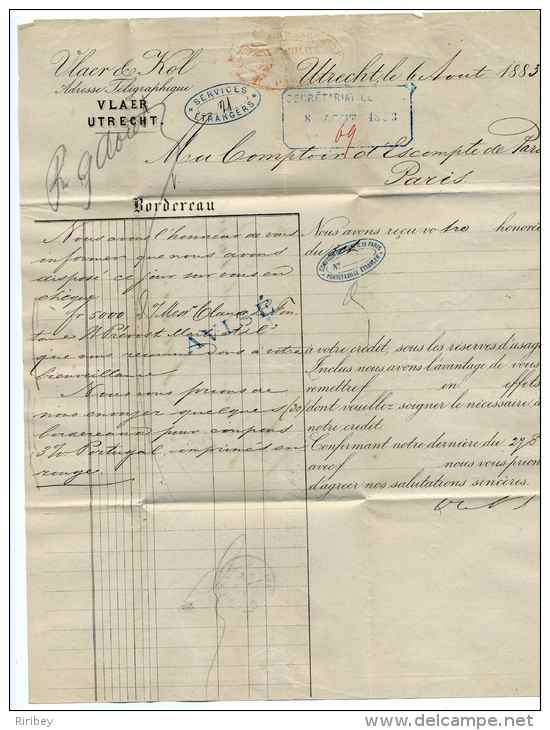 Vlaer & Kol
Adresse Télégraphique
VLAER
UTRECHT.
Utrecht, le 6 Aout 1883
SERVICES
21
ETRANGERS
SECRÉTARIAT
8 1883
69
Au Comptoir d'Escompte de Paris
Paris
Bordereau
Nous avons l'honneur de vous
informer que nous avons
disposé ce jour sur vous en
chèque
fr 5000
AVISÉ
que nous recommandons à votre
bienveillance.
Nous vous prions de
nous envoyer quelques (30)
bordereaux pour coupons
3% Portugal, imprimés en
rouge.
Nous avons reçu votre honorée
du
à votre crédit, sous les réserves d'usage
Inclus nous avons l'avantage de vous
remettre f en effets
dont veuillez soigner le nécessaire à
notre credit.
Confirmant notre dernière du 27/8
avec f nous vous prions
d'agréer nos salutations sincères.
Riribey
www.delcampe.net